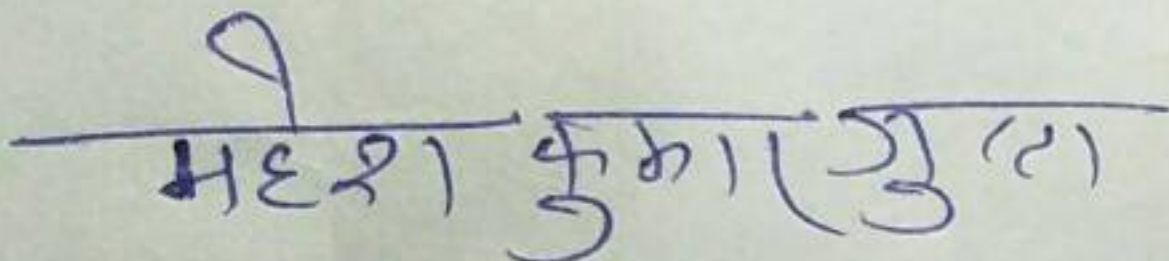 महेश कुमार गुप्ता